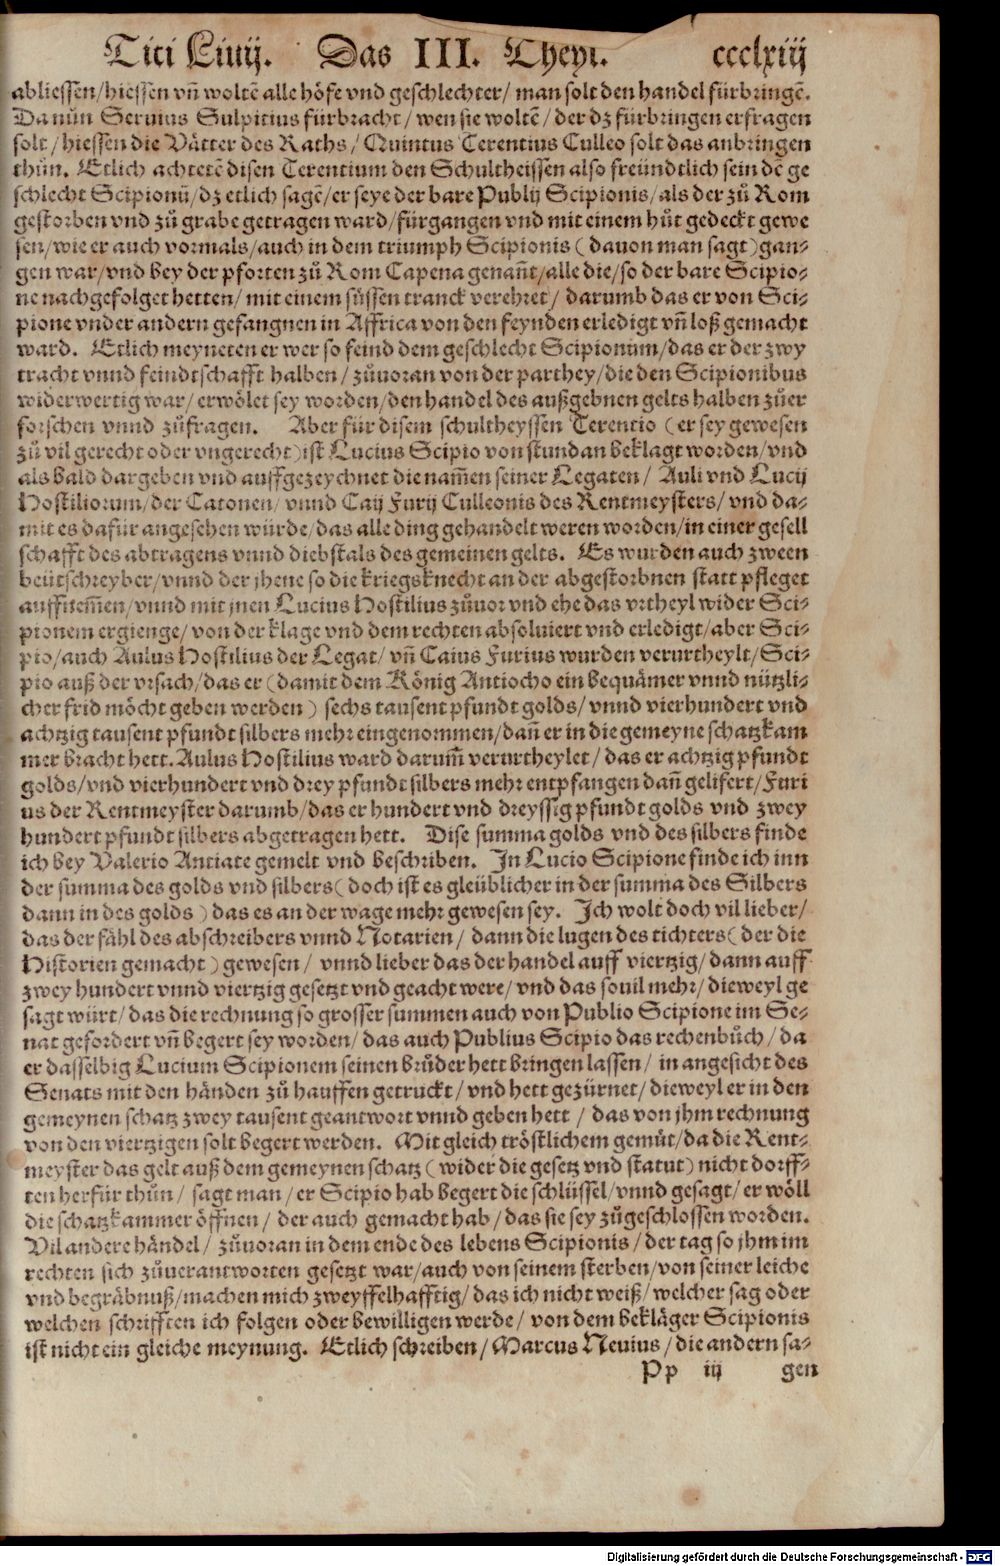 Titi Liuij. Das III. Theyl. ccclxiij
abliessen/hiessen vñ woltẽ alle höfe vnd geschlechter/ man solt den handel fürbringẽ.
Da nůn Seruius Sulpitius fürbracht/ wen sie woltẽ/ der dz fürbringen erfragen
solt/ hiessen die Vätter des Raths/ Quintus Terentius Culleo solt das anbringen
thůn. Etlich achtetẽ disen Terentium den Schultheissen also freündtlich sein dẽ ge
schlecht Scipionũ/dz etlich sagẽ/ er seye der bare Publij Scipionis/als der zů Rom
gestorben vnd zů grabe getragen ward/fürgangen vnd mit einem hůt gedeckt gewe
sen/wie er auch vormals/auch in dem triumph Scipionis (dauon man sagt)gan⸗
gen war/vnd bey der pforten zů Rom Capena genañt/alle die/so der bare Scipio⸗
ne nachgefolget hetten/ mit einem süssen tranck verehret/ darumb das er von Sci⸗
pione vnder andern gefangnen in Affrica von den feynden erledigt vñ loß gemacht
ward. Etlich meyneten er wer so feind dem geschlecht Scipionum/das er der zwy
tracht vnnd feindtschafft halben/ zůuoran von der parthey/die den Scipionibus
widerwertig war/ erwölet sey worden/den handel des außgebnen gelts halben zůer
forschen vnnd zůfragen. Aber für disem schultheyssen Terentio (er sey gewesen
zů vil gerecht oder vngerecht)ist Lucius Scipio von stund an beklagt worden/vnd
als bald dargeben vnd auffgezeychnet die nam̃en seiner Legaten/ Auli vnd Lucij
Hostiliorum/der Catonen/ vnnd Caij Furij Culleonis des Rentmeysters/ vnd da⸗
mit es dafür angesehen würde/das alle ding gehandelt weren worden/in einer gesell
schafft des abtragens vnnd diebstals des gemeinen gelts. Es wurden auch zween
beütschreyber/vnnd der jhene so die kriegsknecht an der abgestorbnen statt pfleget
auffnem̃en/vnnd mit jnen Lucius Hostilius zůuor vnd ehe das vrtheyl wider Sci⸗
pionem ergienge/von der klage vnd dem rechten absoluiert vnd erledigt/aber Sci⸗
pio/auch Aulus Hostilius der Legat/ vñ Caius Furius wurden verurtheylt/Sci⸗
pio auß der vrsach/das er (damit dem König Antiocho ein bequämer vnnd nützli⸗
cher frid möcht geben werden) sechs tausent pfundt golds/ vnnd vierhundert vnd
achtzig tausent pfundt silbers mehr eingenommen/dañ er in die gemeyne schatzkam
mer bracht hett. Aulus Hostilius ward darum̃ verurtheylet/ das er achtzig pfundt
golds/vnd vierhundert vnd drey pfundt silbers mehr entpfangen dañ gelifert/Furi
us der Rentmeyster darumb/das er hundert vnd dreyssig pfundt golds vnd zwey
hundert pfundt silbers abgetragen hett. Dise summa golds vnd des silbers finde
ich bey Valerio Antiate gemelt vnd beschriben. In Lucio Scipione finde ich inn
der summa des golds vnd silbers(doch ist es gleüblicher in der summa des Silbers
dann in des golds) das es an der wage mehr gewesen sey. Ich wolt doch vil lieber/
das der fähl des abschreibers vnnd Notarien/ dann die lugen des tichters(der die
Historien gemacht) gewesen/ vnnd lieber das der handel auff viertzig/dann auff
zwey hundert vnnd viertzig gesetzt vnd geacht were/ vnd das souil mehr/ dieweyl ge
sagt würt/ das die rechnung so grosser summen auch von Publio Scipione im Se⸗
nat gefordert vñ begert sey worden/ das auch Publius Scipio das rechenbůch/ da
er dasselbig Lucium Scipionem seinen brůder hett bringen lassen/ in angesicht des
Senats mit den händen zů hauffen getruckt/ vnd hett gezürnet/ dieweyl er in den
gemeynen schatz zwey tausent geantwort vnnd geben hett/ das von jhm rechnung
von den viertzigen solt begert werden. Mit gleich tröstlichem gemůt/da die Rent⸗
meyster das gelt auß dem gemeynen schatz (wider die gesetz vnd statut) nicht dorff⸗
ten herfür thůn/ sagt man/ er Scipio hab begert die schlüssel/vnnd gesagt/ er wöll
die schatzkammer öffnen/ der auch gemacht hab/ das sie sey zůgeschlossen worden.
Vil andere händel/ zůuoran in dem ende des lebens Scipionis/ der tag so jhm im
rechten sich zůuerantworten gesetzt war/auch von seinem sterben/von seiner leiche
vnd begräbnuß/machen mich zweyffelhafftig/das ich nicht weiß/ welcher sag oder
welchen schrifften ich folgen oder bewilligen werde/ von dem bekläger Scipionis
ist nicht ein gleiche meynung. Etlich schreiben/ Marcus Neuius/ die andern sa⸗
Pp iij gen
Digitalisierung gefördert durch die Deutsche Forschungsgemeinschaft - DFG